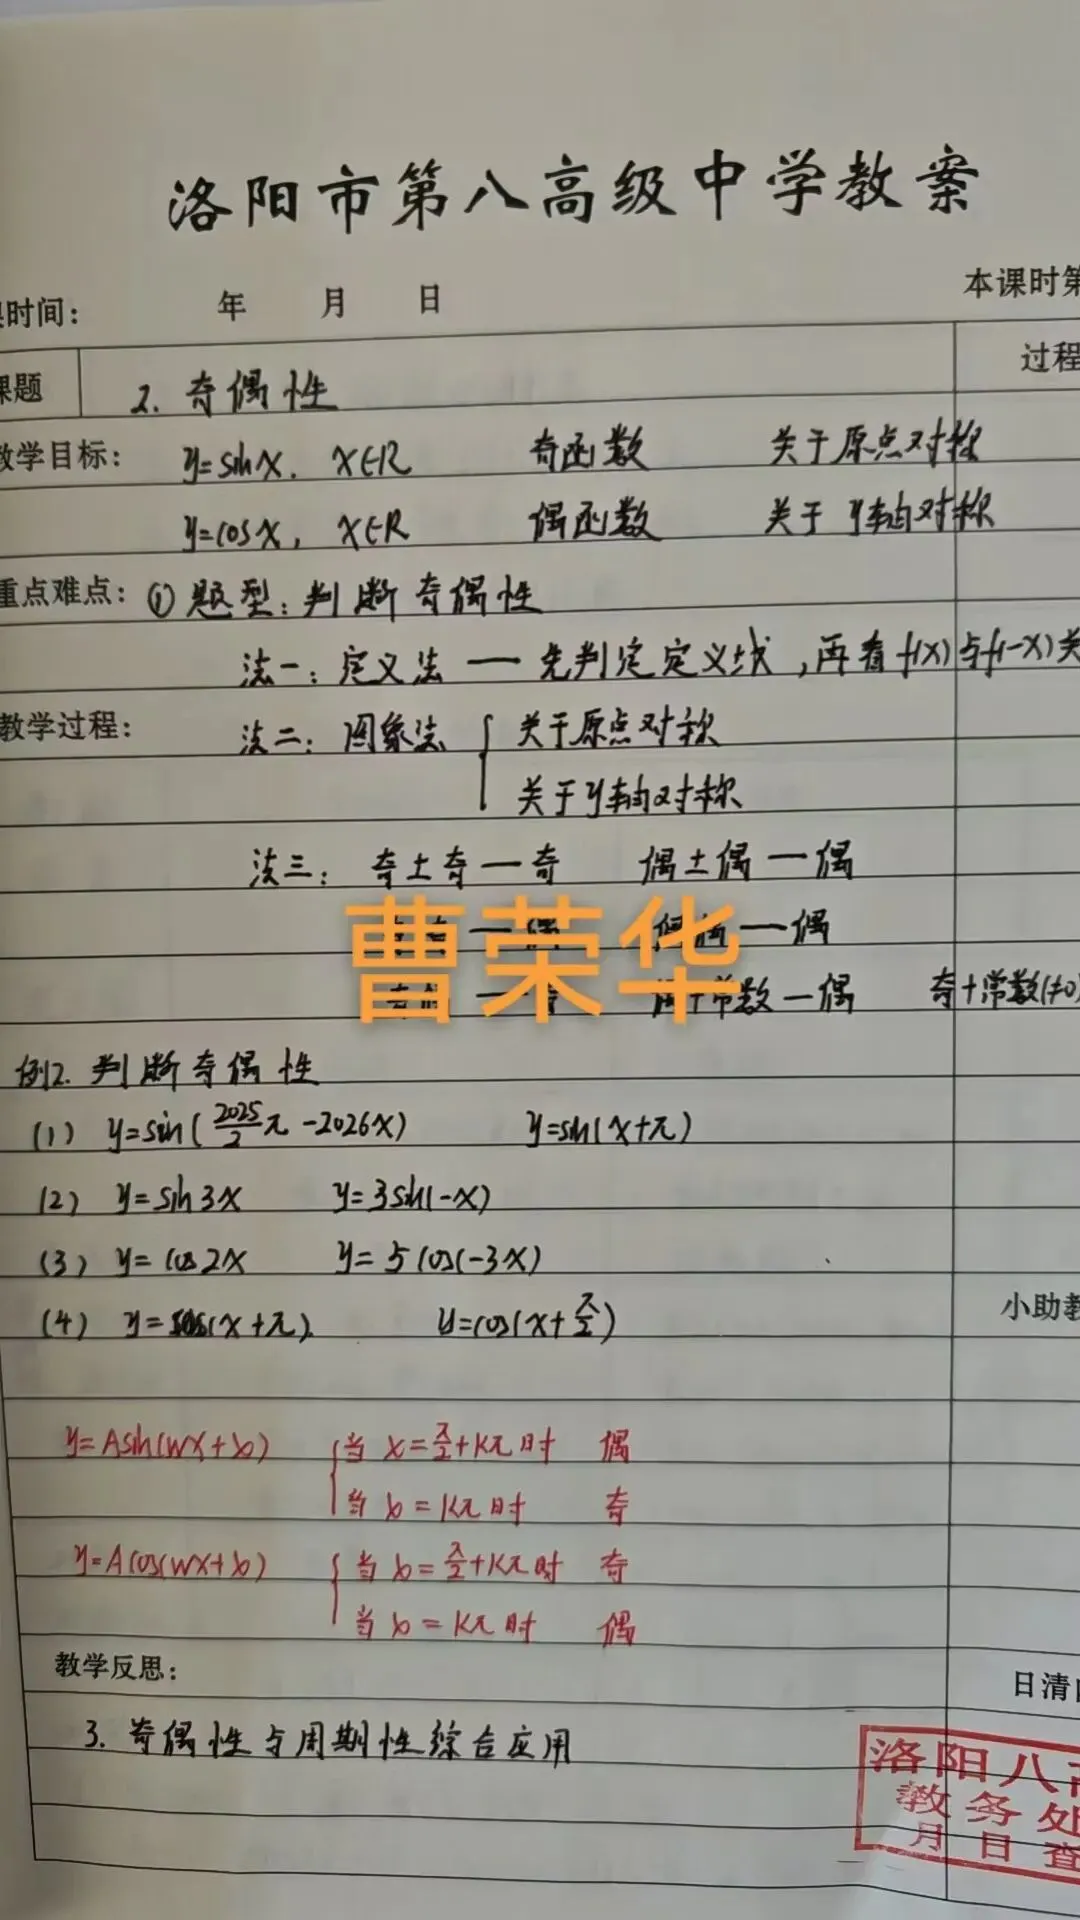 洛阳市第八高级中学教案
时间： 年 月 日 本课时第
课题 2. 奇偶性 过程
教学目标： y=sinx. x∈R 奇函数 关于原点对称
y=cosx, x∈R 偶函数 关于y轴对称
重点难点： ①题型：判断奇偶性
法一：定义法 — 先判定定义域，再看f(x)与f(-x)关
教学过程： 法二：图象法 { 关于原点对称
关于y轴对称
法三： 奇±奇—奇 偶±偶—偶
曹荣华
—偶 偶偶—偶
偶+常数—偶 奇+常数(≠0)
例2. 判断奇偶性
(1) y=sin(2025/2π-2026x) y=sin(x+π)
(2) y=sin3x y=3sin(-x)
(3) y=cos2x y=5cos(-3x)
(4) y=cos(x+π). y=cos(x+π/2)
小助教
y=Asin(wx+φ) { 当 =π/2+kπ时 偶
当φ=kπ时 奇
y=Acos(wx+φ) { 当φ=π/2+kπ时 奇
当φ=kπ时 偶
教学反思： 日清
3. 奇偶性与周期性综合应用
洛阳八高
教务处
月日查